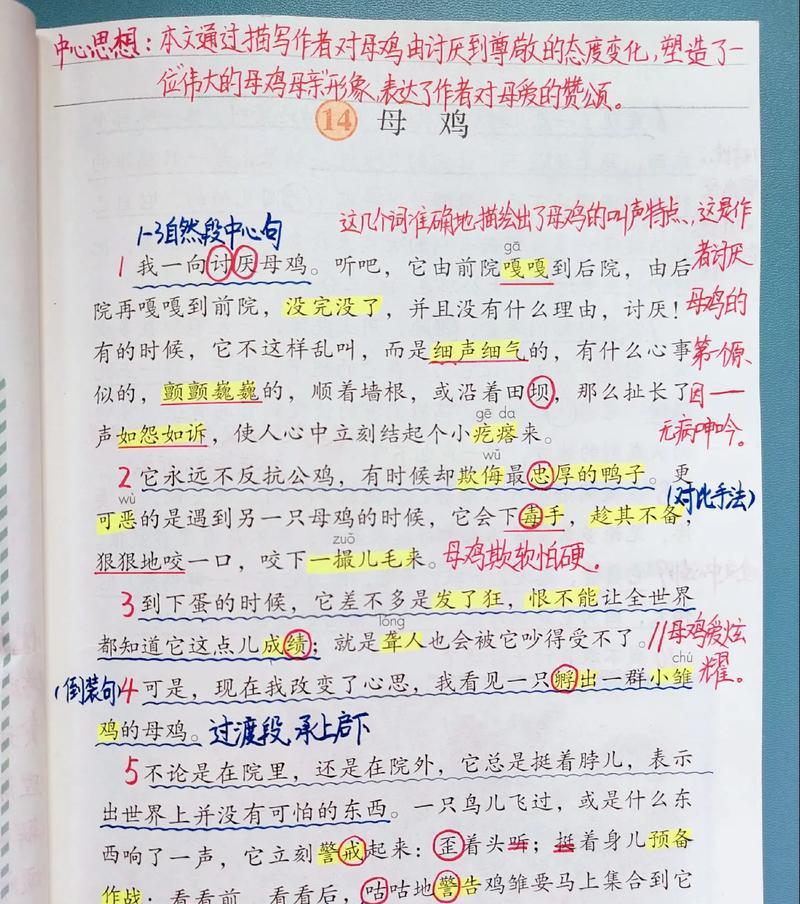 中心思想：本文通过描写作者对母鸡由讨厌到尊敬的态度变化，塑造了一
位“伟大的母鸡母亲”形象，表达了作者对母爱的赞颂。
14 母 鸡
1-3自然段中心句
这几个词准确地描绘出了母鸡的叫声特点，这是作
者讨厌
母鸡的
第一个原
因——
无病呻吟。
gā
1 我一向讨厌母鸡。听吧，它由前院嘎嘎到后院，由后
院再嘎嘎到前院，没完没了，并且没有什么理由，讨厌！
有的时候，它不这样乱叫，而是细声细气的，有什么心事
似的，颤颤巍巍的，顺着墙根，或沿着田坝，那么扯长了
gē da
声如怨如诉，使人心中立刻结起个小疙瘩来。
wǔ
2 它永远不反抗公鸡，有时候却欺侮最忠厚的鸭子。更
(对比手法)
wù
可恶的是遇到另一只母鸡的时候，它会下毒手，趁其不备，
zuǒ
狠狠地咬一口，咬下一撮儿毛来。母鸡欺软怕硬。
3 到下蛋的时候，它差不多是发了狂，恨不能让全世界
lóng
都知道它这点儿成绩；就是聋人也会被它吵得受不了。//母鸡爱炫
耀。
chú
(倒装句)4 可是，现在我改变了心思，我看见一只孵出一群小雏
鸡的母鸡。过渡段，承上启下
5 不论是在院里，还是在院外，它总是挺着脖儿，表示
出世界上并没有可怕的东西。一只鸟儿飞过，或是什么东
西响了一声，它立刻警戒起来：歪着头听；挺着身儿预备
作战；看看前，看看后，咕咕地警告鸡雏要马上集合到它